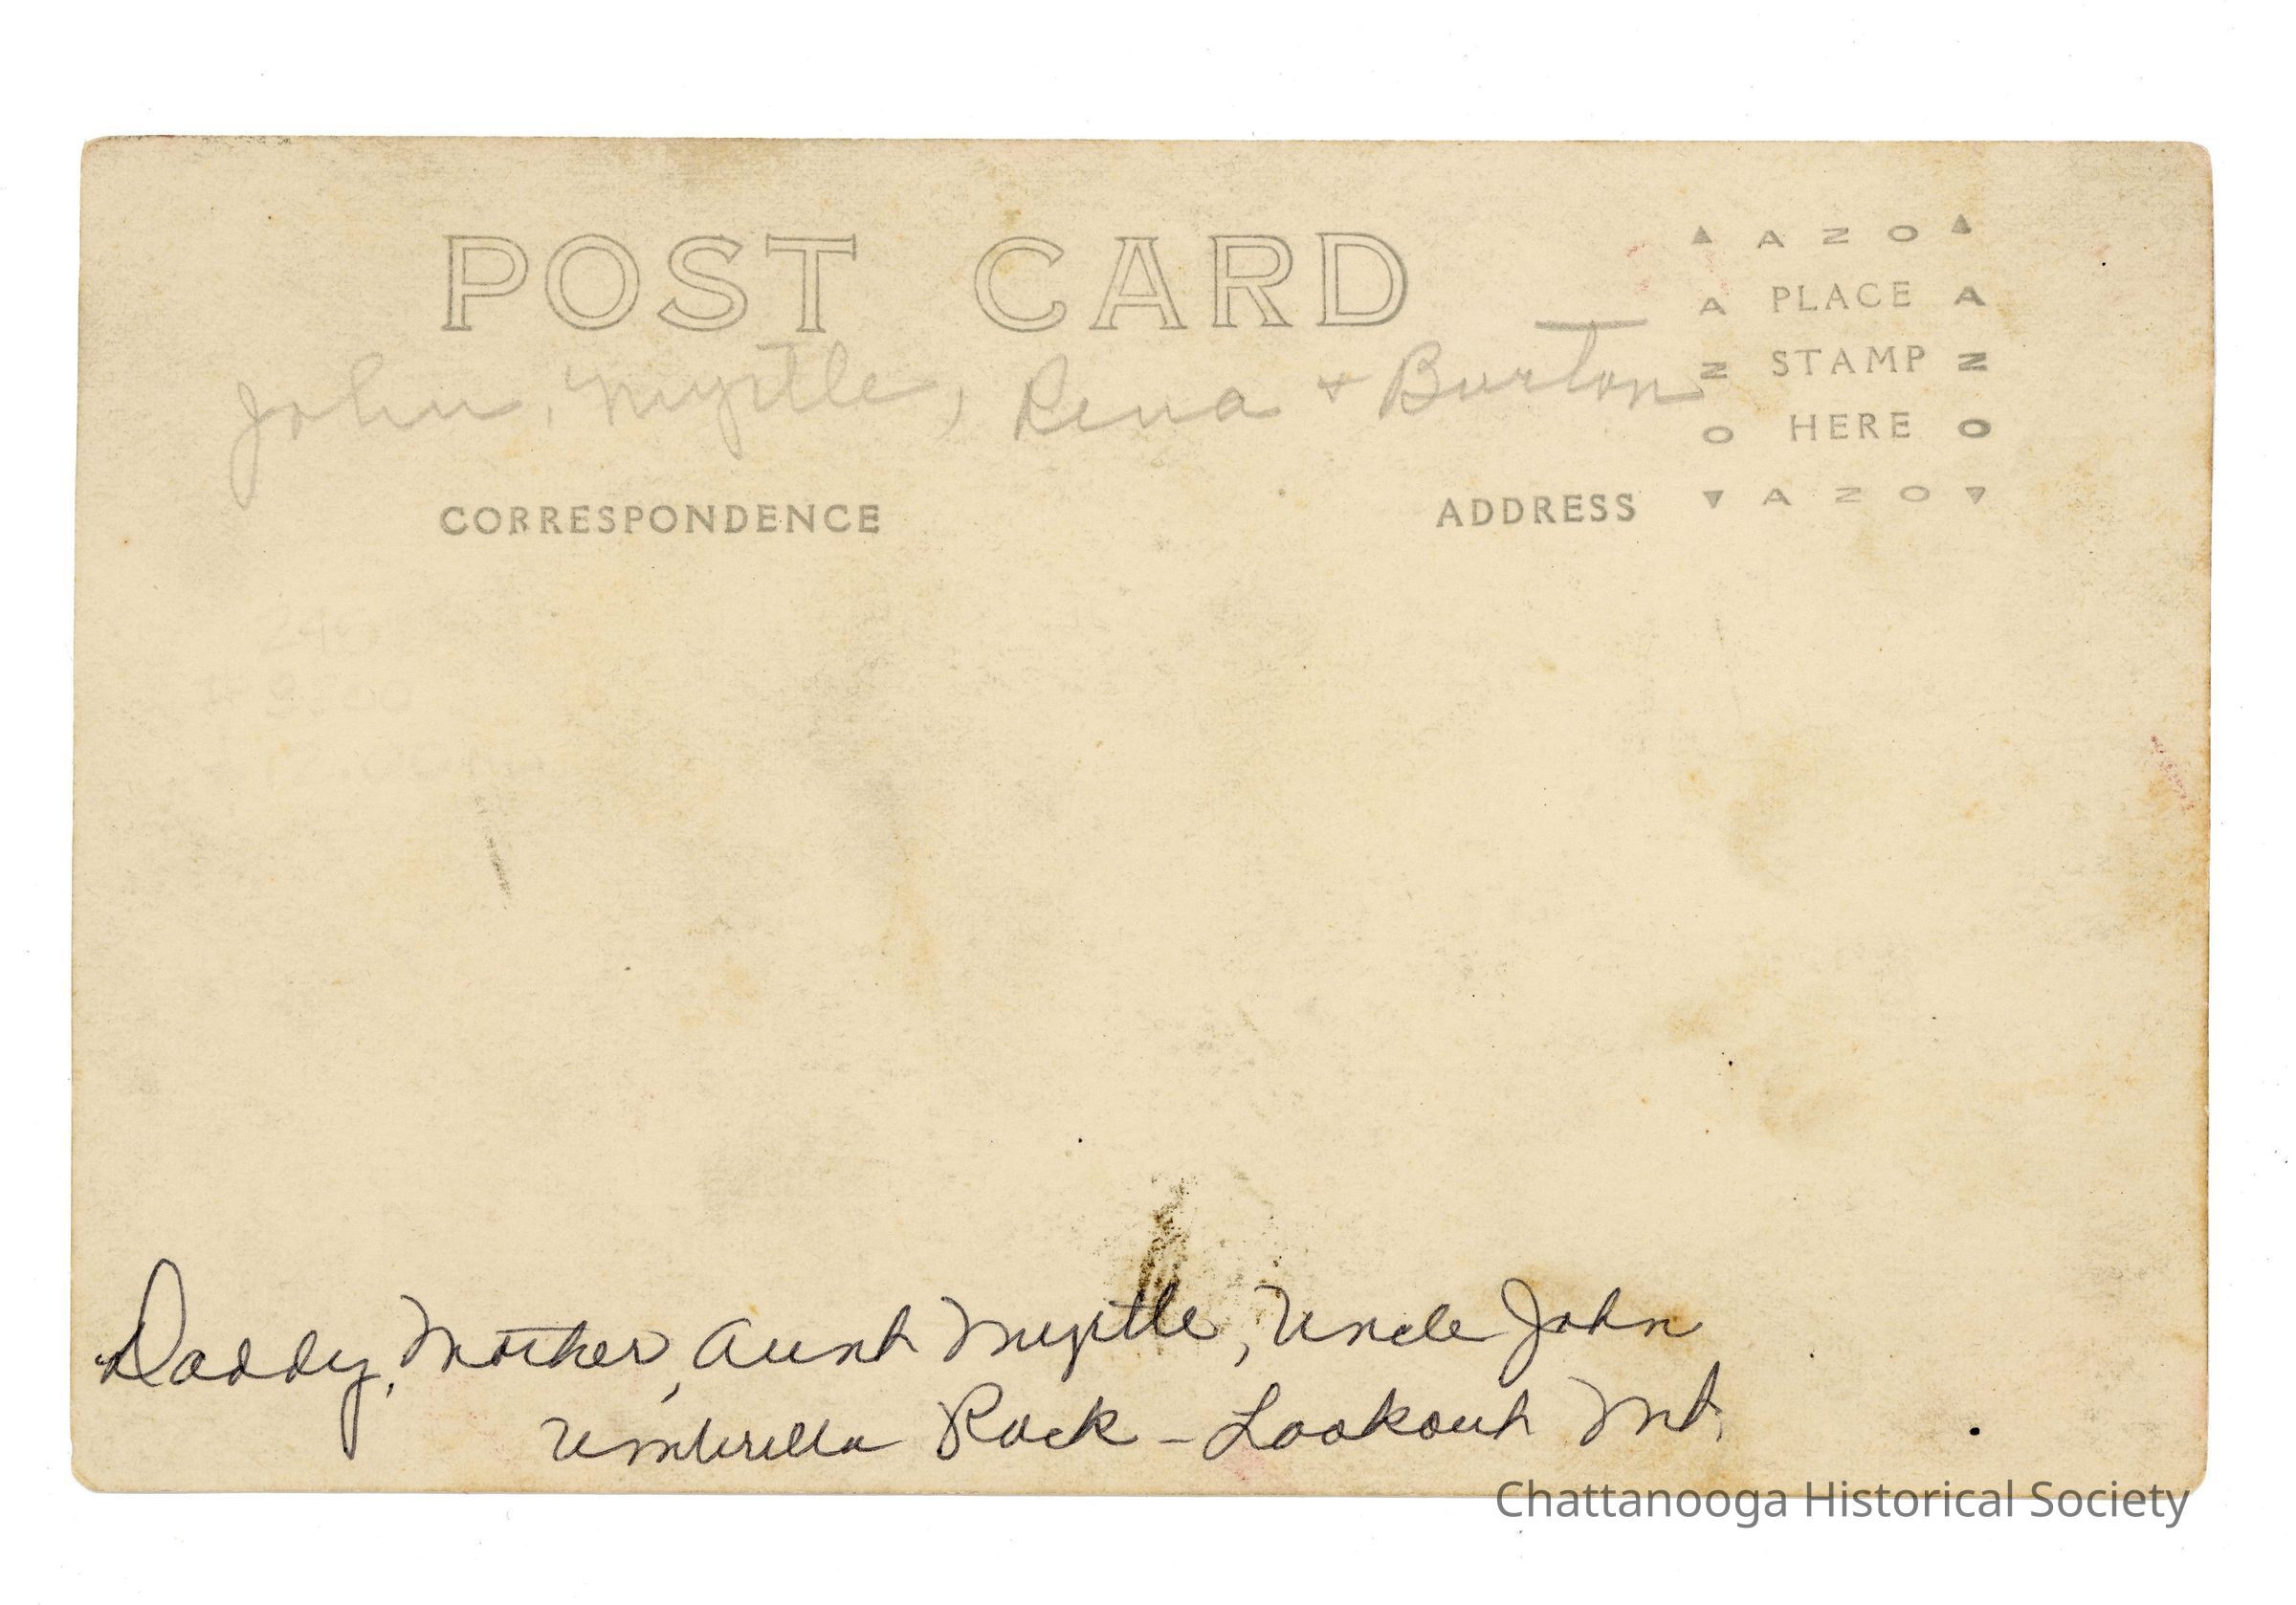 POST CARD
▲ A Z O ▲
A PLACE A
Z STAMP Z
O HERE O
▼ A Z O ▼
John, Myrtle, Rena + Burton
CORRESPONDENCE
ADDRESS
Daddy, Mother, Aunt Myrtle, Uncle John
Umbrella Rock - Lookout Mt.
Chattanooga Historical Society